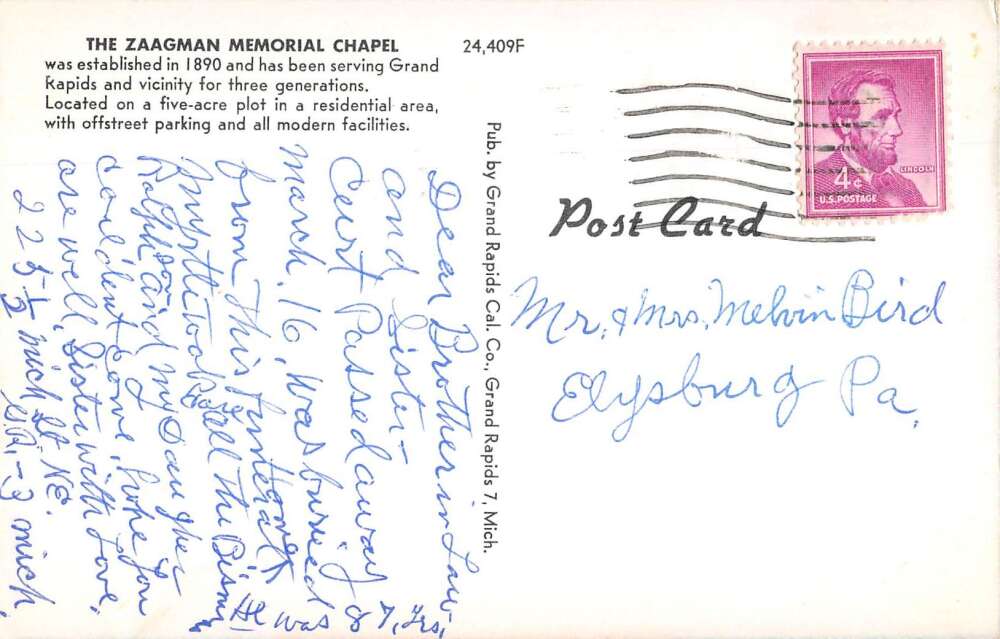 THE ZAAGMAN MEMORIAL CHAPEL
was established in 1890 and has been serving Grand
Rapids and vicinity for three generations.
Located on a five-acre plot in a residential area,
with offstreet parking and all modern facilities.
24,409F
Pub. by Grand Rapids Cal. Co., Grand Rapids 7, Mich.
LINCOLN
4¢
U.S. POSTAGE
Post Card
Mr. & Mrs. Melvin Bird
Elysburg Pa.
Dear Brother in Law
and Sister-
Curt Passed away
March, 16, was buried
from This funeral
home
He was 87, Yrs,
Myrtle took all The
Ralph and my Daugher
son
could'ent come, hope you
are well, Sister with Love,
225½ Mich St NE.
G.R.-3 Mich